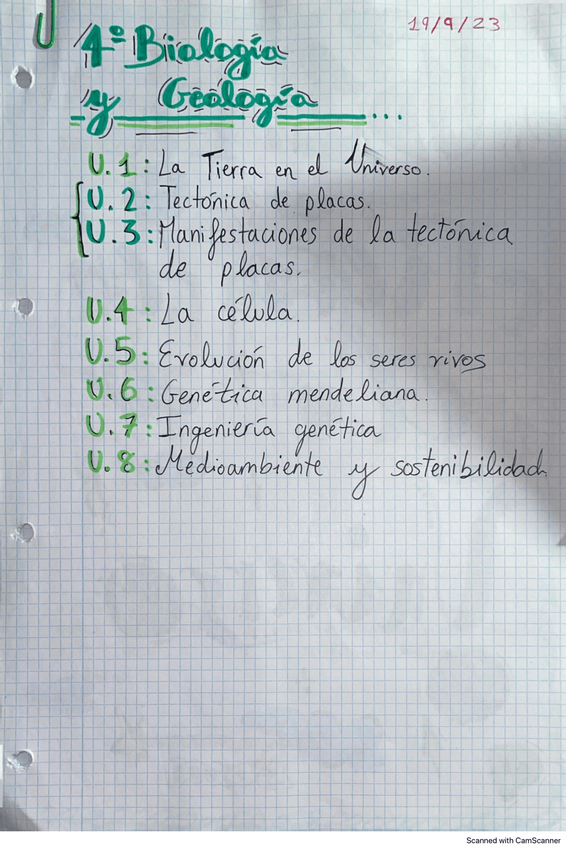 19/9/23
4º Biología
y Geología...
U.1: La Tierra en el Universo.
U.2: Tectónica de placas.
U.3: Manifestaciones de la tectónica
de placas.
U.4: La célula.
U.5: Evolución de los seres vivos
U.6: Genética mendeliana.
U.7: Ingeniería genética
U.8: Medioambiente y sostenibilidad
Scanned with CamScanner